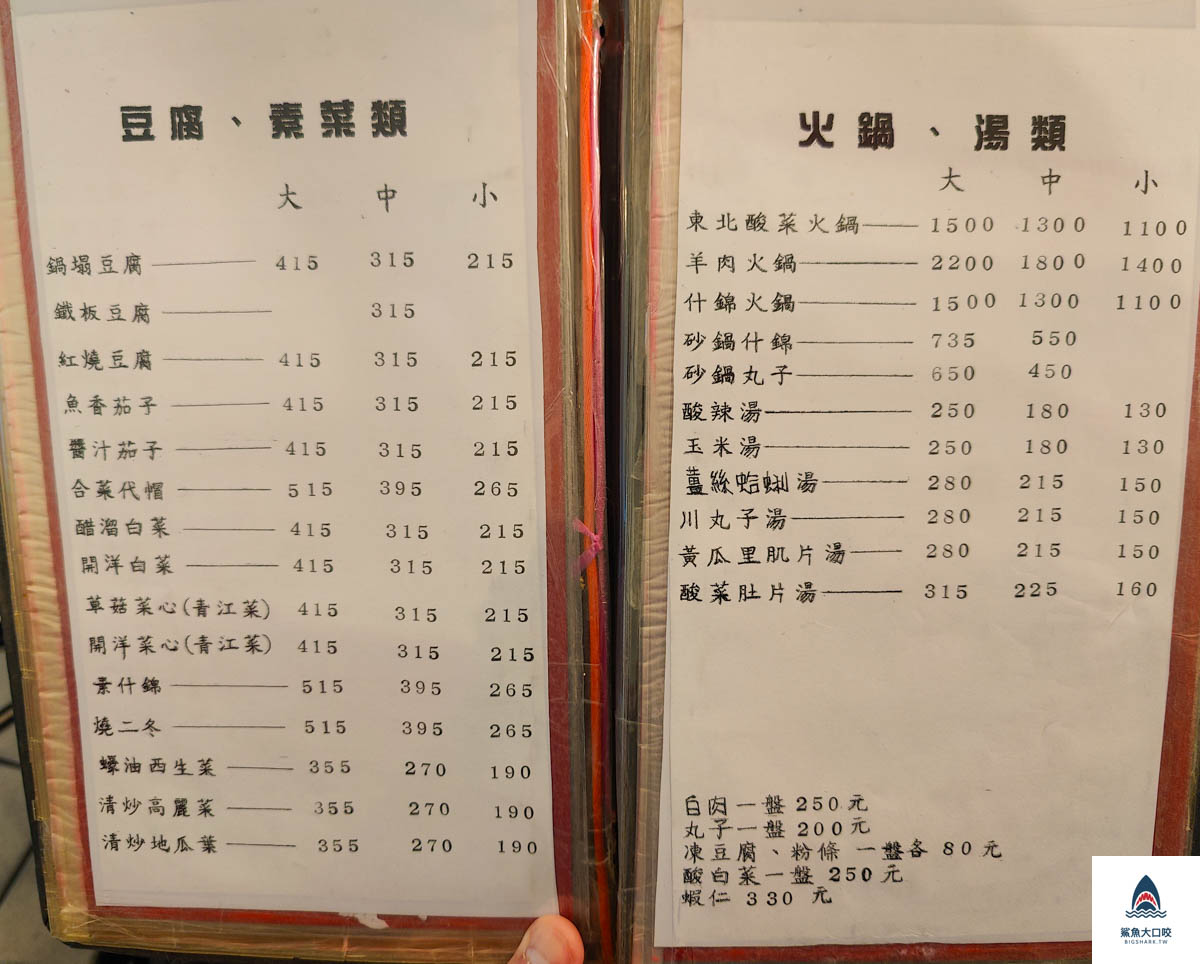 豆腐、素菜類
大 中 小
鍋塌豆腐 415 315 215
鐵板豆腐 315
紅燒豆腐 415 315 215
魚香茄子 415 315 215
醬汁茄子 415 315 215
合菜代帽 515 395 265
醋溜白菜 415 315 215
開洋白菜 415 315 215
草菇菜心(青江菜) 415 315 215
開洋菜心(青江菜) 415 315 215
素什錦 515 395 265
燒二冬 515 395 265
蠔油西生菜 355 270 190
清炒高麗菜 355 270 190
清炒地瓜葉 355 270 190
火鍋、湯類
大 中 小
東北酸菜火鍋 1500 1300 1100
羊肉火鍋 2200 1800 1400
什錦火鍋 1500 1300 1100
砂鍋什錦 735 550
砂鍋丸子 650 450
酸辣湯 250 180 130
玉米湯 250 180 130
薑絲蛤蜊湯 280 215 150
川丸子湯 280 215 150
黃瓜里肌片湯 280 215 150
酸菜肚片湯 315 225 160
白肉一盤 250元
丸子一盤 200元
凍豆腐、粉條 一盤各 80元
酸白菜一盤 250元
蝦仁 330 元
鯊魚大口咬
BIGSHARK.TW